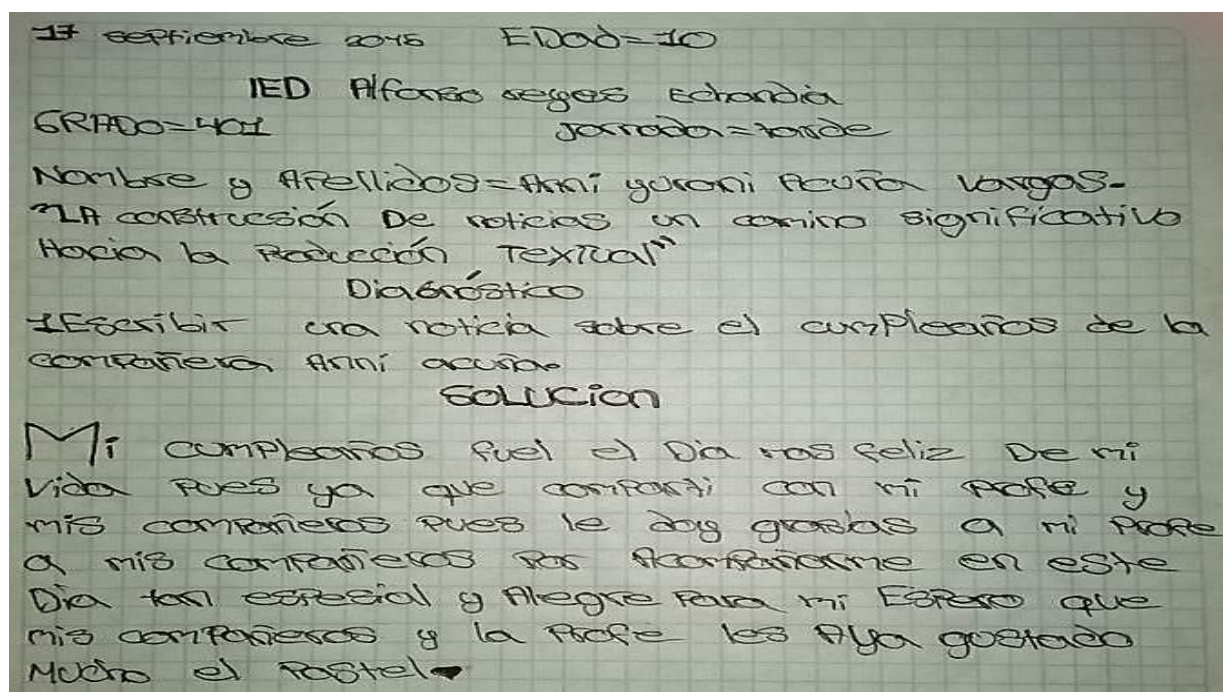 17 septiembre 2015 EDad=10
IED Alfonso reyes Echandia
GRADO=401 Jornada=tarde
Nombre y Apellidos=Anni yurani Acuña vargas-
"LA construcsión De noticias un camino significativo
Hacia la Producción Textual"
Diagnóstico
1Escribir una noticia sobre el cumpleaños de la
compañera Anni acuña
Solucion
Mi cumpleaños fuel el Dia mas feliz De mi
vida pues ya que comparti con mi profe y
mis compañeros pues le doy grasias a mi Profe
a mis compañeros por Acompañarme en este
Dia tan especial y Alegre para mi Espero que
mis compañeros y la Profe les Aya gustado
Mucho el Pastel